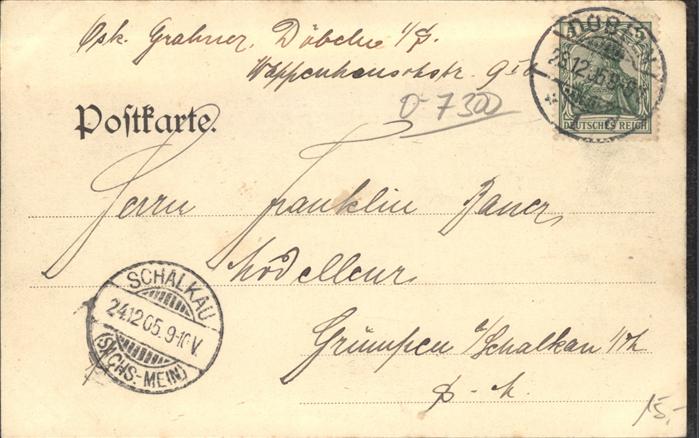 Osk. Grahner, Döbeln i/S.
Wappenhenschstr. 9 I
DÖBELN
12.05.9-
DEUTSCHES REICH
0-7300
Postkarte.
Herrn Franklin Bauer
Modelleur
Grümpen b/Schalkau i/Th
S.-M.
SCHALKAU
24.12.05.9-10V.
(SACHS.-MEIN.)
15.-